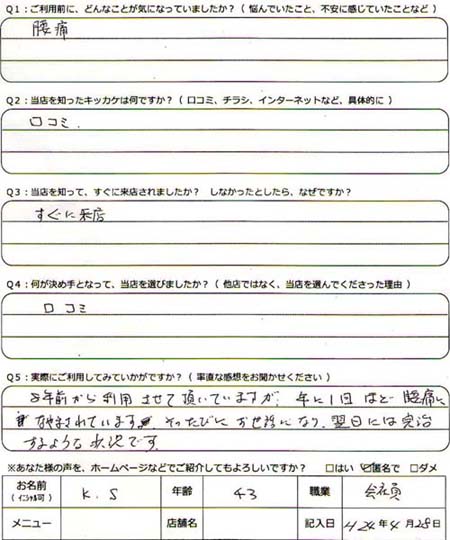 Q1：ご利用前に、どんなことが気になっていましたか？（ 悩んでいたこと、不安に感じていたことなど ）
腰痛
Q2：当店を知ったキッカケは何ですか？（ 口コミ、チラシ、インターネットなど、具体的に ）
口コミ.
Q3：当店を知って、すぐに来店されましたか？ しなかったとしたら、なぜですか？
すぐに来店
Q4：何が決め手となって、当店を選びましたか？（ 他店ではなく、当店を選んでくださった理由 ）
口コミ
Q5：実際にご利用してみていかがですか？（ 率直な感想をお聞かせください ）
8年前から利用させて頂いていますが、年に1回ほど腰痛に
なやまされています。そのたびにお世話になり、翌日には完治
するような状況です。
※あなた様の声を、ホームページなどでご紹介してもよろしいですか？ □はい ☑匿名で □ダメ
お名前（ イニシャル可 ） K.S 年齢 43 職業 会社員
メニュー 店舗名 記入日 H24年4月28日